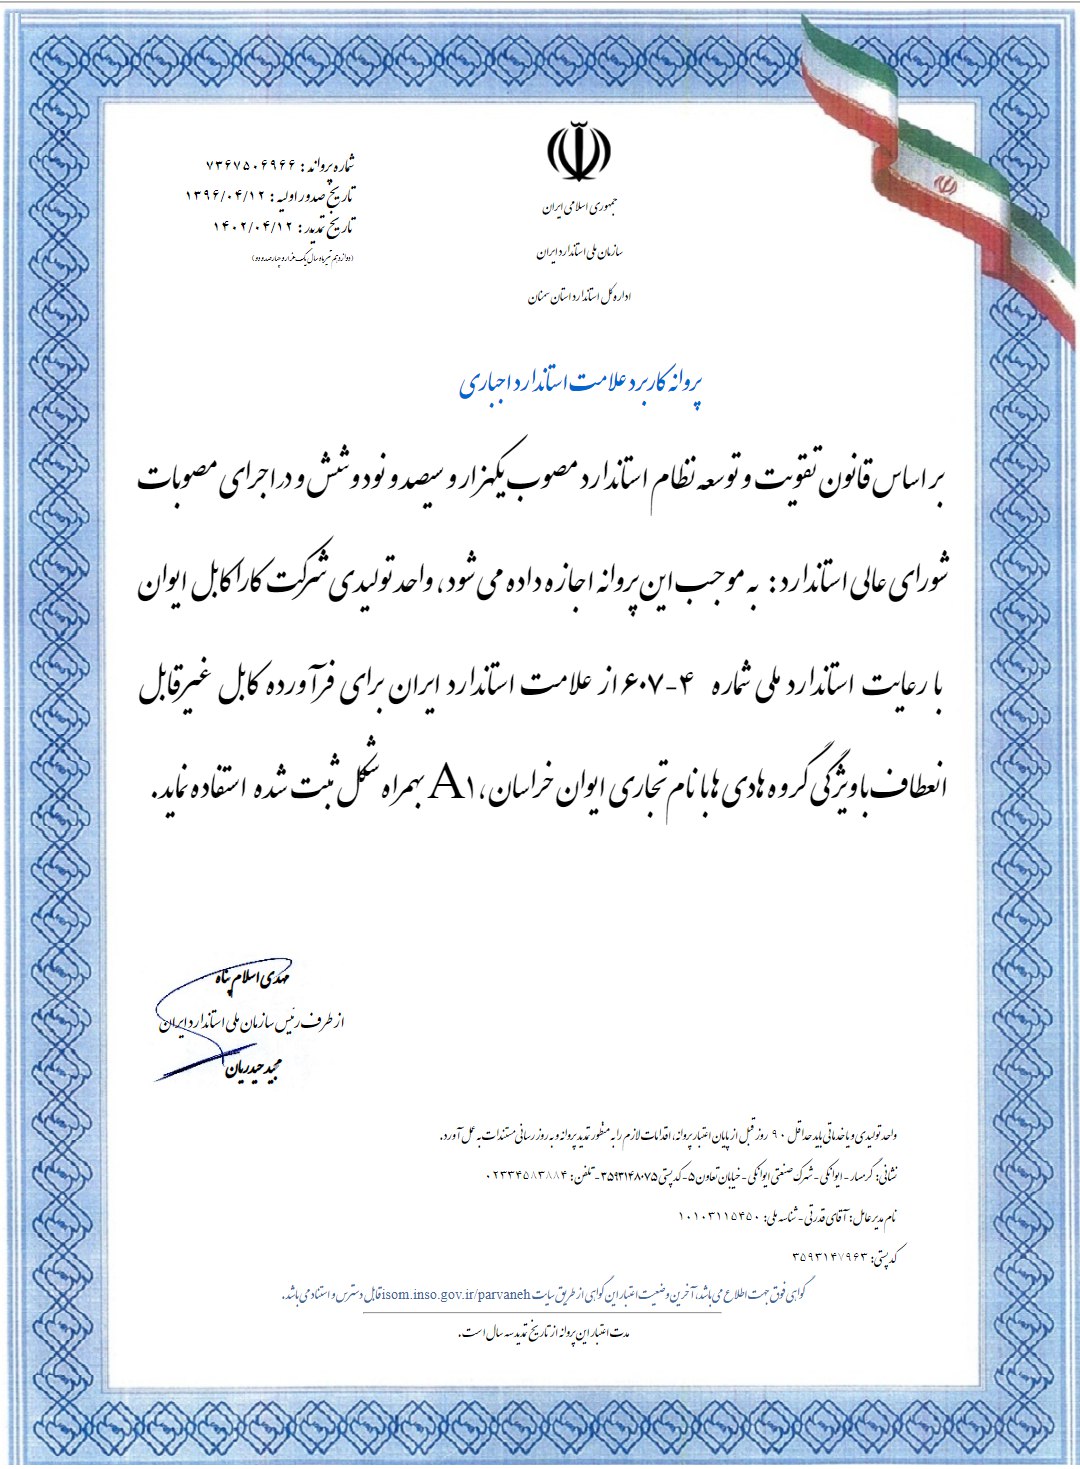 جمهوری اسلامی ایران
سازمان ملی استاندارد ایران
اداره کل استاندارد استان سمنان
شماره پروانه : ۷۳۶۷۵۰۶۹۶۶
تاریخ صدور اولیه : ۱۳۹۶/۰۴/۱۲
تاریخ تمدید : ۱۴۰۲/۰۴/۱۲
(دوازدهم تیرماه سال یک هزار و چهارصد و دو)
پروانه کاربرد علامت استاندارد اجباری
بر اساس قانون تقویت و توسعه نظام استاندارد مصوب یکهزار و سیصد و نود و شش و در اجرای مصوبات
شورای عالی استاندارد : به موجب این پروانه اجازه داده می شود، واحد تولیدی شرکت کارا کابل ایوان
با رعایت استاندارد ملی شماره ۴-۶۰۷ از علامت استاندارد ایران برای فرآورده کابل غیرقابل
انعطاف با ویژگی گروه هادی ها با نام تجاری ایوان خراسان، A۱ بهمراه شکل ثبت شده استفاده نماید.
مهدی اسلام پناه
از طرف رئیس سازمان ملی استاندارد ایران
مجید حیدریان
واحد تولیدی و یا خدماتی باید حداقل ۹۰ روز قبل از پایان اعتبار پروانه، اقدامات لازم را به منظور تمدید پروانه و به روز رسانی مستندات به عمل آورد.
نشانی: گرمسار - ایوانکی - شهرک صنعتی ایوانکی - خیابان تعاون ۵- کد پستی ۳۵۹۳۱۴۸۰۷۵- تلفن: ۰۲۳۳۴۵۸۳۸۸۴
نام مدیر عامل: آقای قدرتی - شناسه ملی: ۱۰۱۰۳۱۱۵۴۵۰
کد پستی: ۳۵۹۳۱۴۷۹۶۳
گواهی فوق جهت اطلاع می باشد، آخرین وضعیت اعتبار این گواهی از طریق سایت isom.inso.gov.ir/parvaneh قابل دسترس و استناد می باشد.
مدت اعتبار این پروانه از تاریخ تمدید سه سال است.